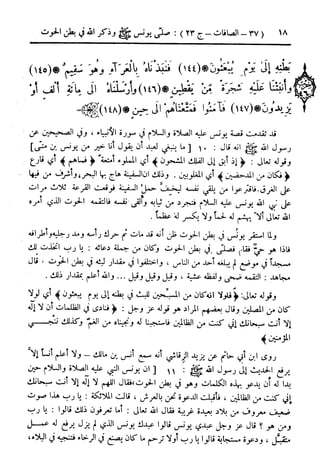 ١٨ (٣٧ – الصافات – ج ٢٣) : صلّى يونس ﷺ وذكر الله في بطن الحوت
بَطْنِهِ إِلَى يَوْمِ يُبْعَثُونَ * (١٤٤) فَنَبَذْنَاهُ بِالْعَرَاءِ وَهُوَ سَقِيمٌ * (١٤٥)
وَأَنْبَتْنَا عَلَيْهِ شَجَرَةً مِنْ يَقْطِينٍ * (١٤٦) وَأَرْسَلْنَاهُ إِلَى مِائَةِ أَلْفٍ أَوْ
يَزِيدُونَ * (١٤٧) فَآمَنُوا فَمَتَّعْنَاهُمْ إِلَى حِينٍ * (١٤٨)
قد تقدمت قصة يونس عليه الصلاة والسلام في سورة الأنبياء ، وفي الصحيحين عن
رسول الله ﷺ انه قال : ١٠ [ ما ينبغي لعبد أن يقول أنا خير من يونس بن متى ]
وقوله تعالى : ﴿ إذ أبق إلى الفلك المشحون ﴾ أي المملوء أمتعة ﴿ فساهم ﴾ أي قارع
﴿ فكان من المدحضين ﴾ أي المغلوبين . وذلك ان السفينة هاج بها البحر وأشرف من فيها
على الغرق. فاقترعوا من يلقي نفسه ليخف حمل السفينة فوقعت القرعة ثلاث مرات
على نبي الله يونس عليه السلام فتجرد من ثيابه وألقى نفسه فالتقمه الحوت الذي أمره
الله تعالى ألا يهشم له لحماً ولا يكسر له عظماً .
ولما استقر يونس في بطن الحوت ظن أنه قد مات ثم حرك رأسه ومد رجليه وأطرافه
فاذا هو حي فقام فصلّى في بطن الحوت وكان من جملة دعائه : يا رب اتخذت لك
مسجداً في موضع لم يبلغه أحد من الناس ، واختلفوا في مقدار لبثه في بطن الحوت ، قال
مجاهد : التقمه ضحى ولفظه عشية ، وقيل وقيل وقيل ... والله أعلم بمقدار ذلك .
وقوله تعالى: ﴿ فلولا انه كان من المسبحين للبث في بطنه إلى يوم يبعثون ﴾ أي لولا
كان من المصلين وقال بعضهم المراد هو قوله عز وجل : ﴿ فنادى في الظلمات أن لا إله
إلا أنت سبحانك إني كنت من الظالمين فاستجبنا له ونجيناه من الغم وكذلك ننجي
المؤمنين ﴾
روى ابن أبي حاتم عن يزيد الرقاشي أنه سمع أنس بن مالك – ولا أعلم أنساً إلا
يرفع الحديث إلى رسول الله ﷺ : ١١ [ ان يونس النبي عليه الصلاة والسلام حين
بدا له أن يدعو بهذه الكلمات وهو في بطن الحوت ، فقال اللهم لا إله إلا أنت سبحانك
إني كنت من الظالمين ، فأقبلت الدعوة تحن بالعرش ، قالت الملائكة : يا رب هذا صوت
ضعيف معروف من بلاد بعيدة غريبة فقال الله تعالى : أما تعرفون ذلك قالوا : يا رب
ومن هو ؟ قال عز وجل عبدي يونس قالوا عبدك يونس الذي لم يزل يرفع له عمل
متقبل ، ودعوة مستجابة قالوا يا رب أولا ترحم ما كان يصنع في الرخاء فتنجيه في البلاء،